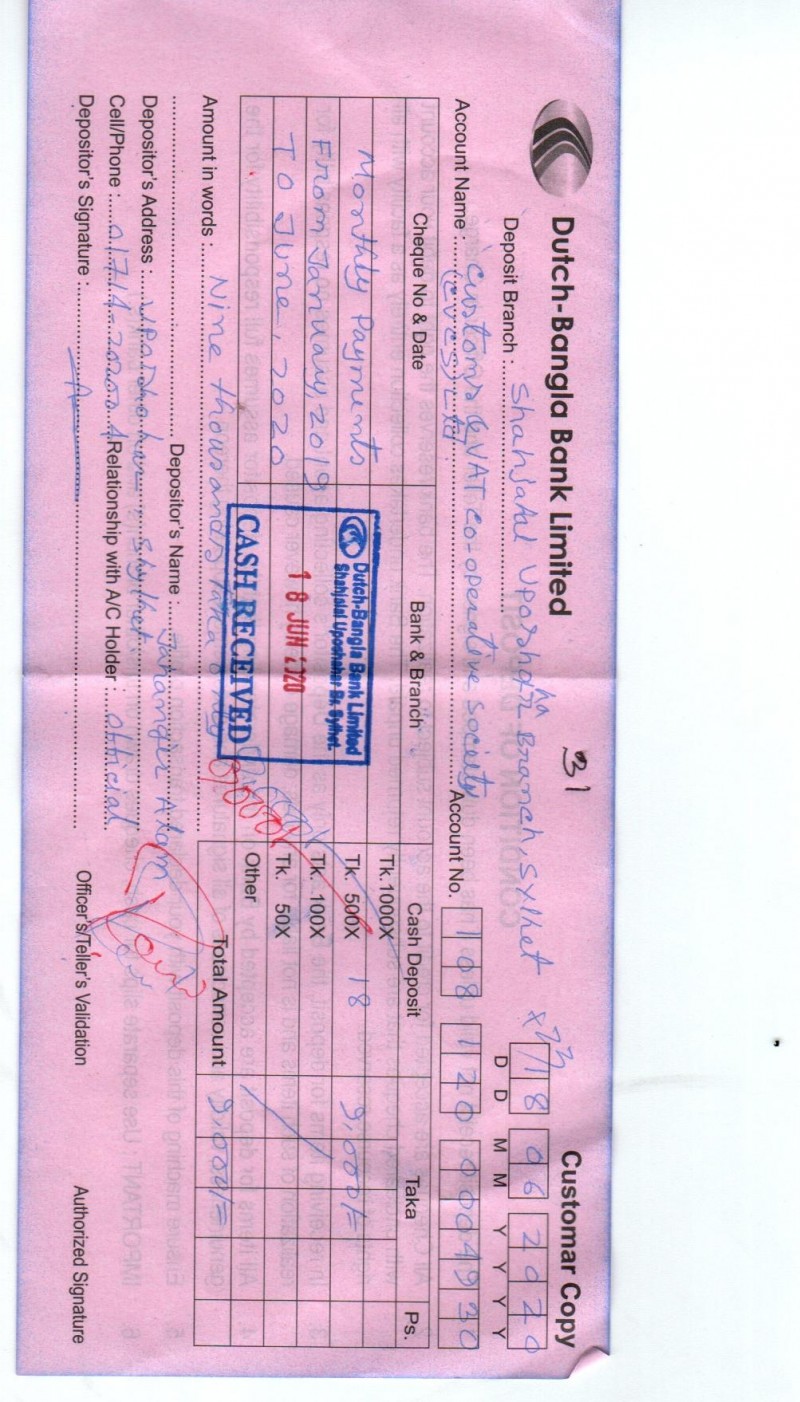 31
Dutch-Bangla Bank Limited
Customar Copy
Deposit Branch : Shahjalal Uparshahar Branch, Sylhet
18 06 2020
D D M M Y Y Y Y
Account Name : Customs & VAT Co-operative Society
(CVCS) Ltd
Account No. 108 120 0004930
Cheque No & Date Bank & Branch Cash Deposit Taka Ps.
Tk.1000X
Monthly Payments Tk. 500X 18 9,000/=
From January, 2019 Tk. 100X
To June, 2020 Tk. 50X
Other
Total Amount 9,000/=
Dutch-Bangla Bank Limited
Shahjalal Uposhahar Br. Sylhet.
18 JUN 2020
CASH RECEIVED
9,000/
Amount in words : Nine thousands taka only
Depositor's Name : Jahangir Alam
Depositor's Address : Uparshahar, Sylhet
Cell/Phone : Relationship with A/C Holder : Official
Depositor's Signature :
Officer's/Teller's Validation
Authorized Signature